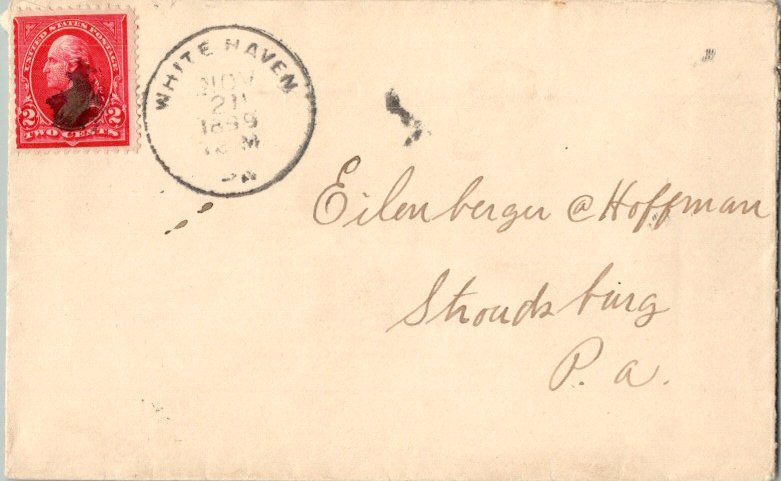 UNITED STATES POSTAGE
2 2
TWO CENTS
WHITE HAVEN
NOV
21
1899
M
PA
Eilenberger @ Hoffman
Stroudsburg
P. a.